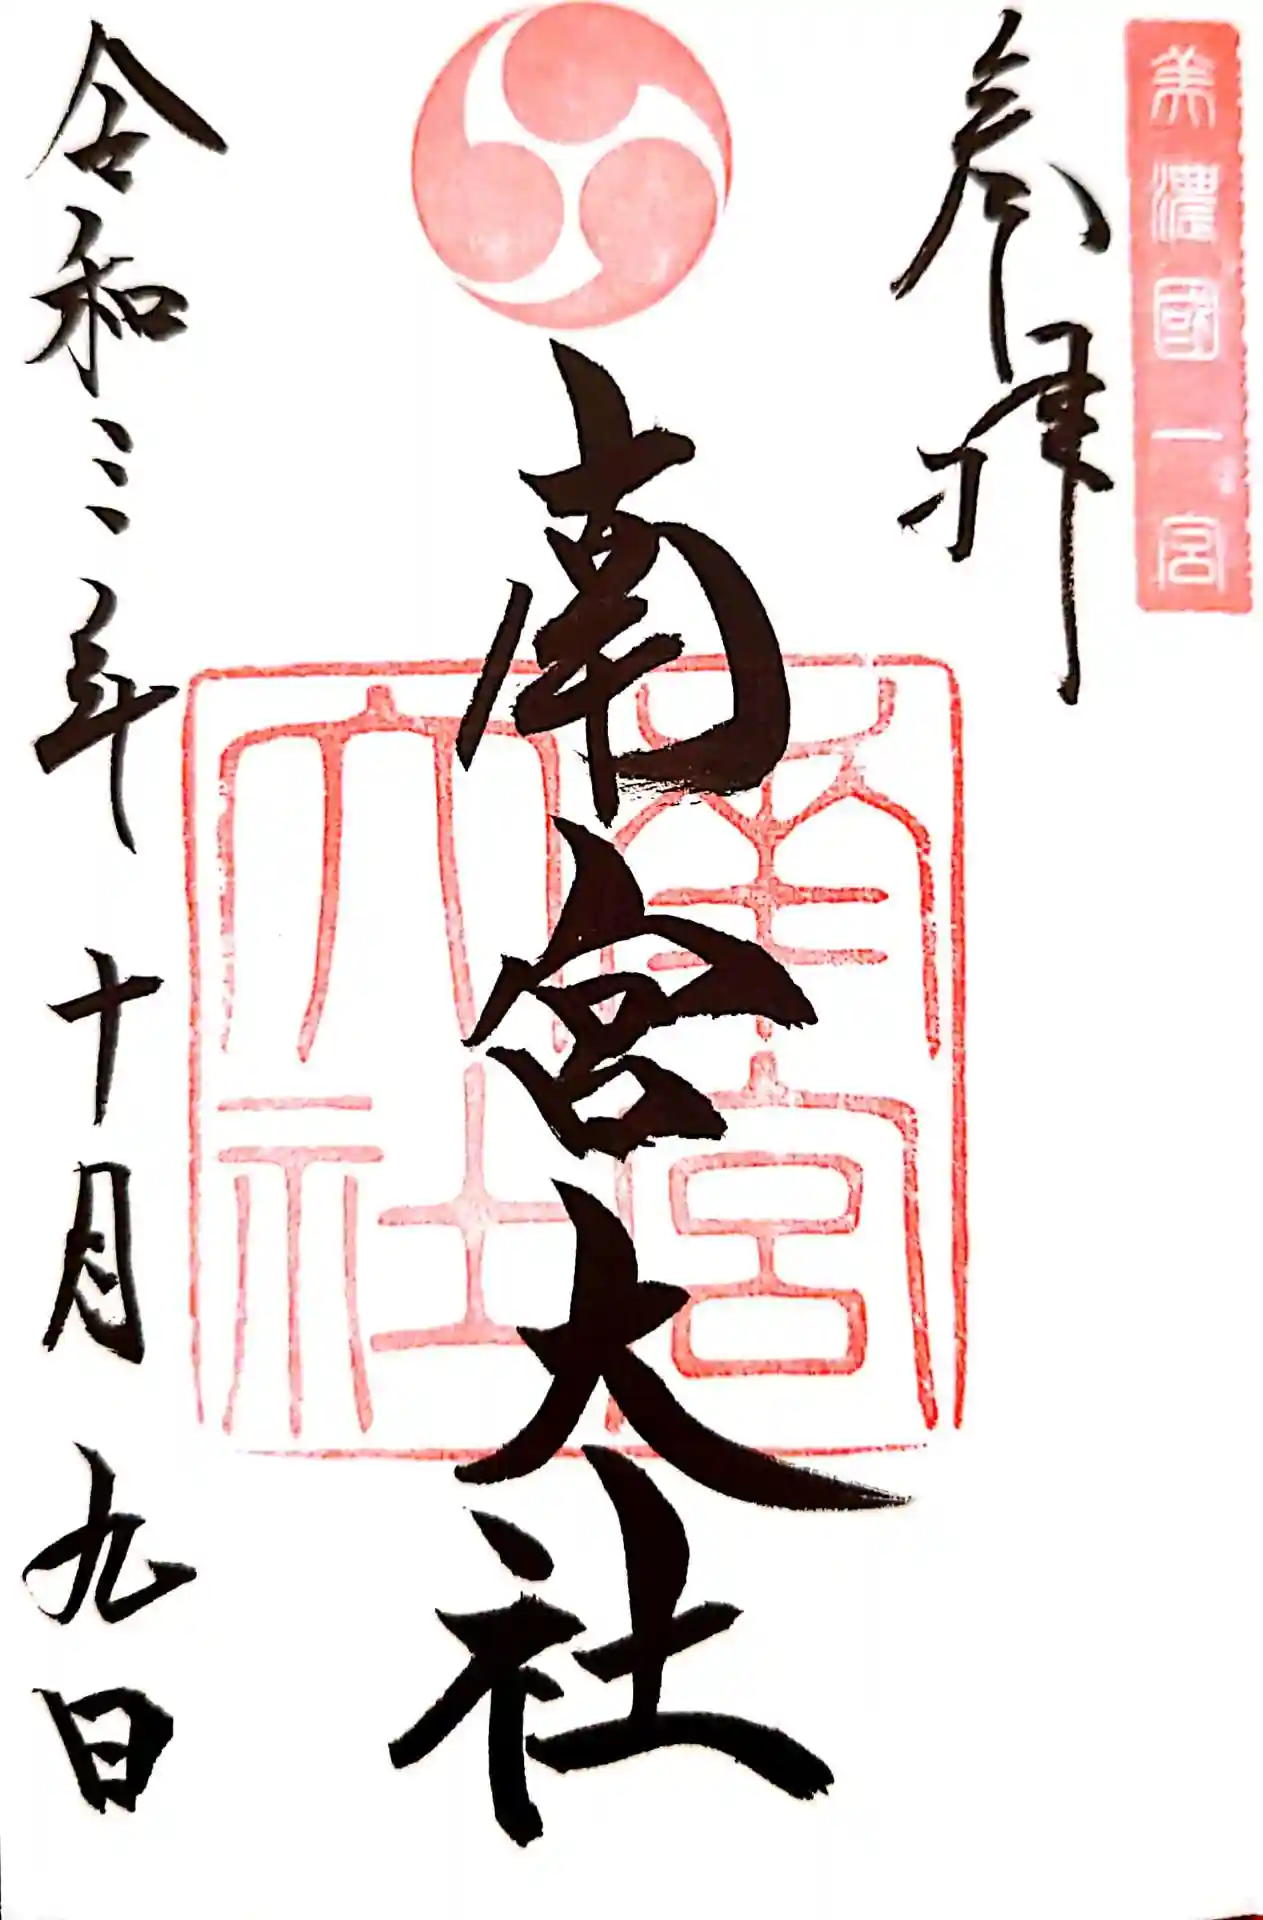 美濃國一宮
参拝
南宮大社
南宮
大社
令和三年十月九日